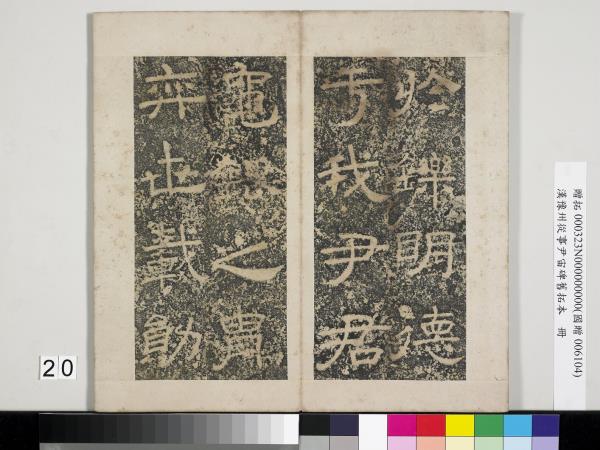 於鑠明德
于我尹君
龜銀之胄
弈世載勛
贈拓 000323N000000000(國贈 006104)
漢豫州從事尹宙碑舊拓本 冊
20